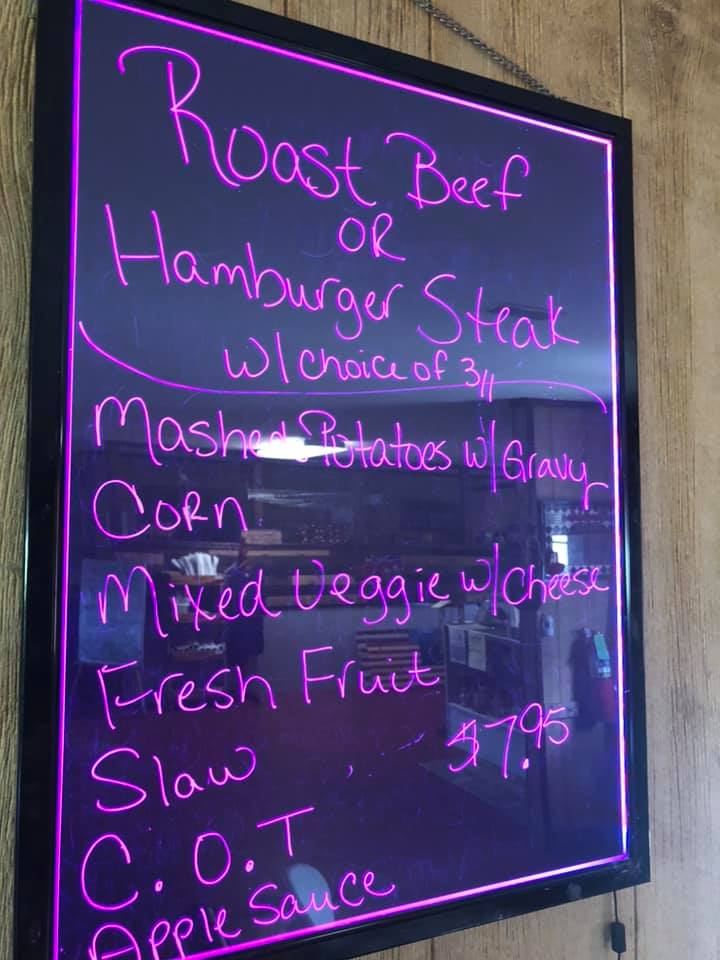 Roast Beef
OR
Hamburger Steak
w/ choice of 3
Mashed Potatoes w/ Gravy
Corn
Mixed Veggie w/ Cheese
Fresh Fruit
Slaw $7.95
C.O.T
Apple Sauce